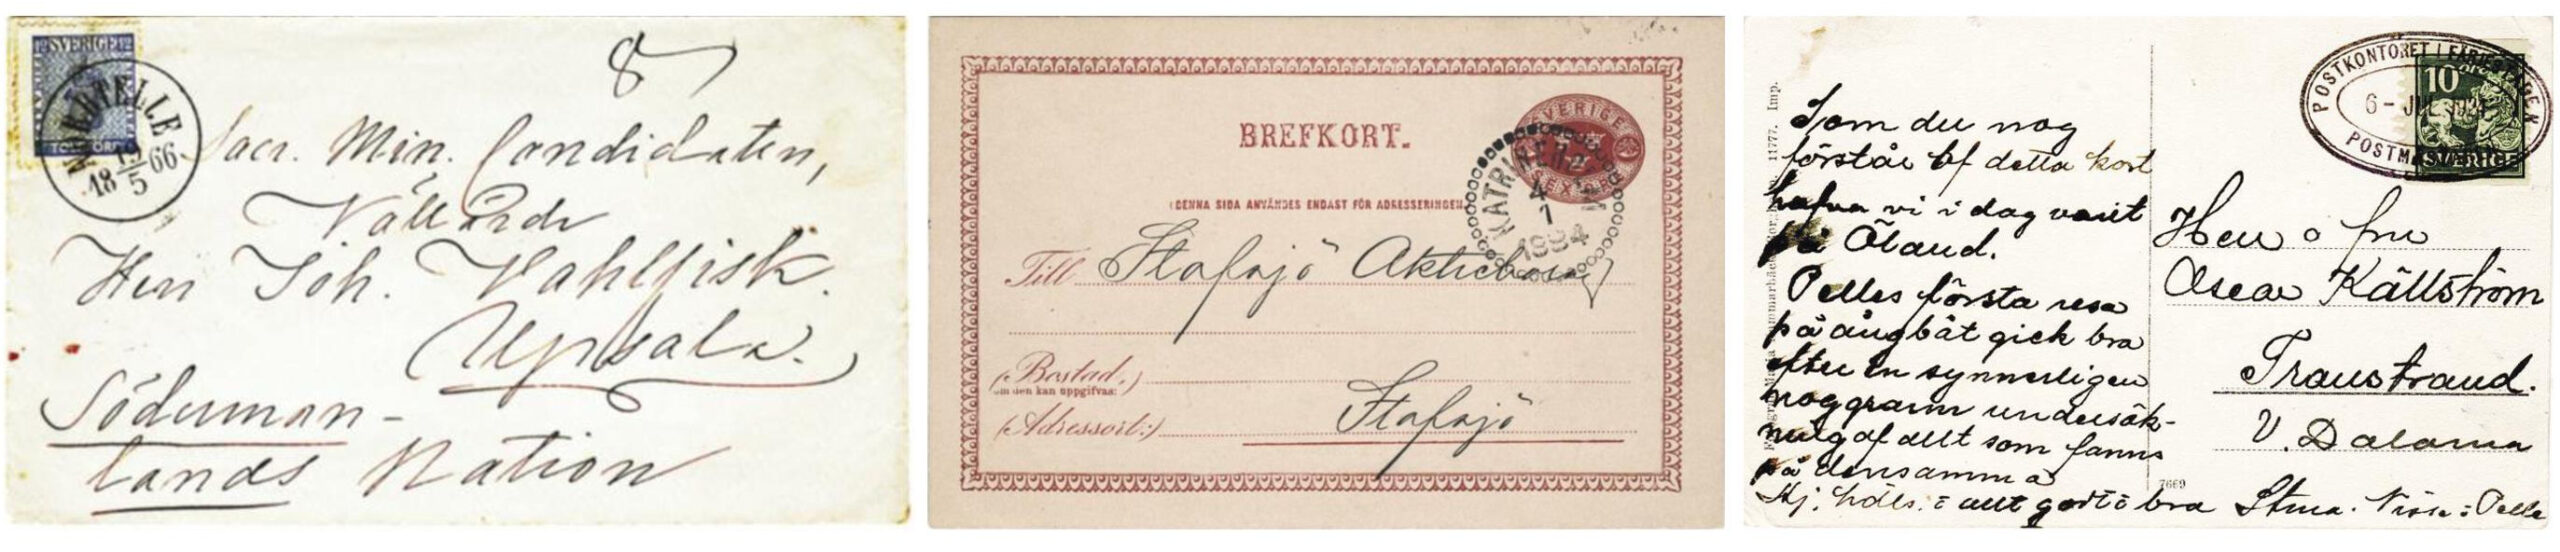 12 SVERIGE 12
TOLF ÖRE
NORRTELJE
19
18 66
5
8
Sacr. Min. Candidaten,
Vällärde
Herr Joh. Wahlfisk.
Upsala.
Söderman-
lands Nation
BREFKORT.
SVERIGE
SEX ÖRE
(DENNA SIDA ANVÄNDES ENDAST FÖR ADRESSERINGEN.)
4
1
1884
Till Stafsjö Aktiebolag
(Bostad,)
om den kan uppgifvas:
(Adressort:)
Stafsjö
11777. Imp.
Som du nog
förstår af detta kort
hafva vi i dag varit
på Öland.
Pelles första resa
på ångbåt gick bra
efter en synnerligen
noggrann undersök-
ning af allt som fanns
på densamma
Hj. häls. = allt godt o bra Stina. Nisse o Pelle
7669
POSTKONTORET I FÄRJESTADEN
6 - JUL 1924
10 ÖRE
SVERIGE
Herr o fru
Oscar Källström
Transtrand.
V. Dalarna